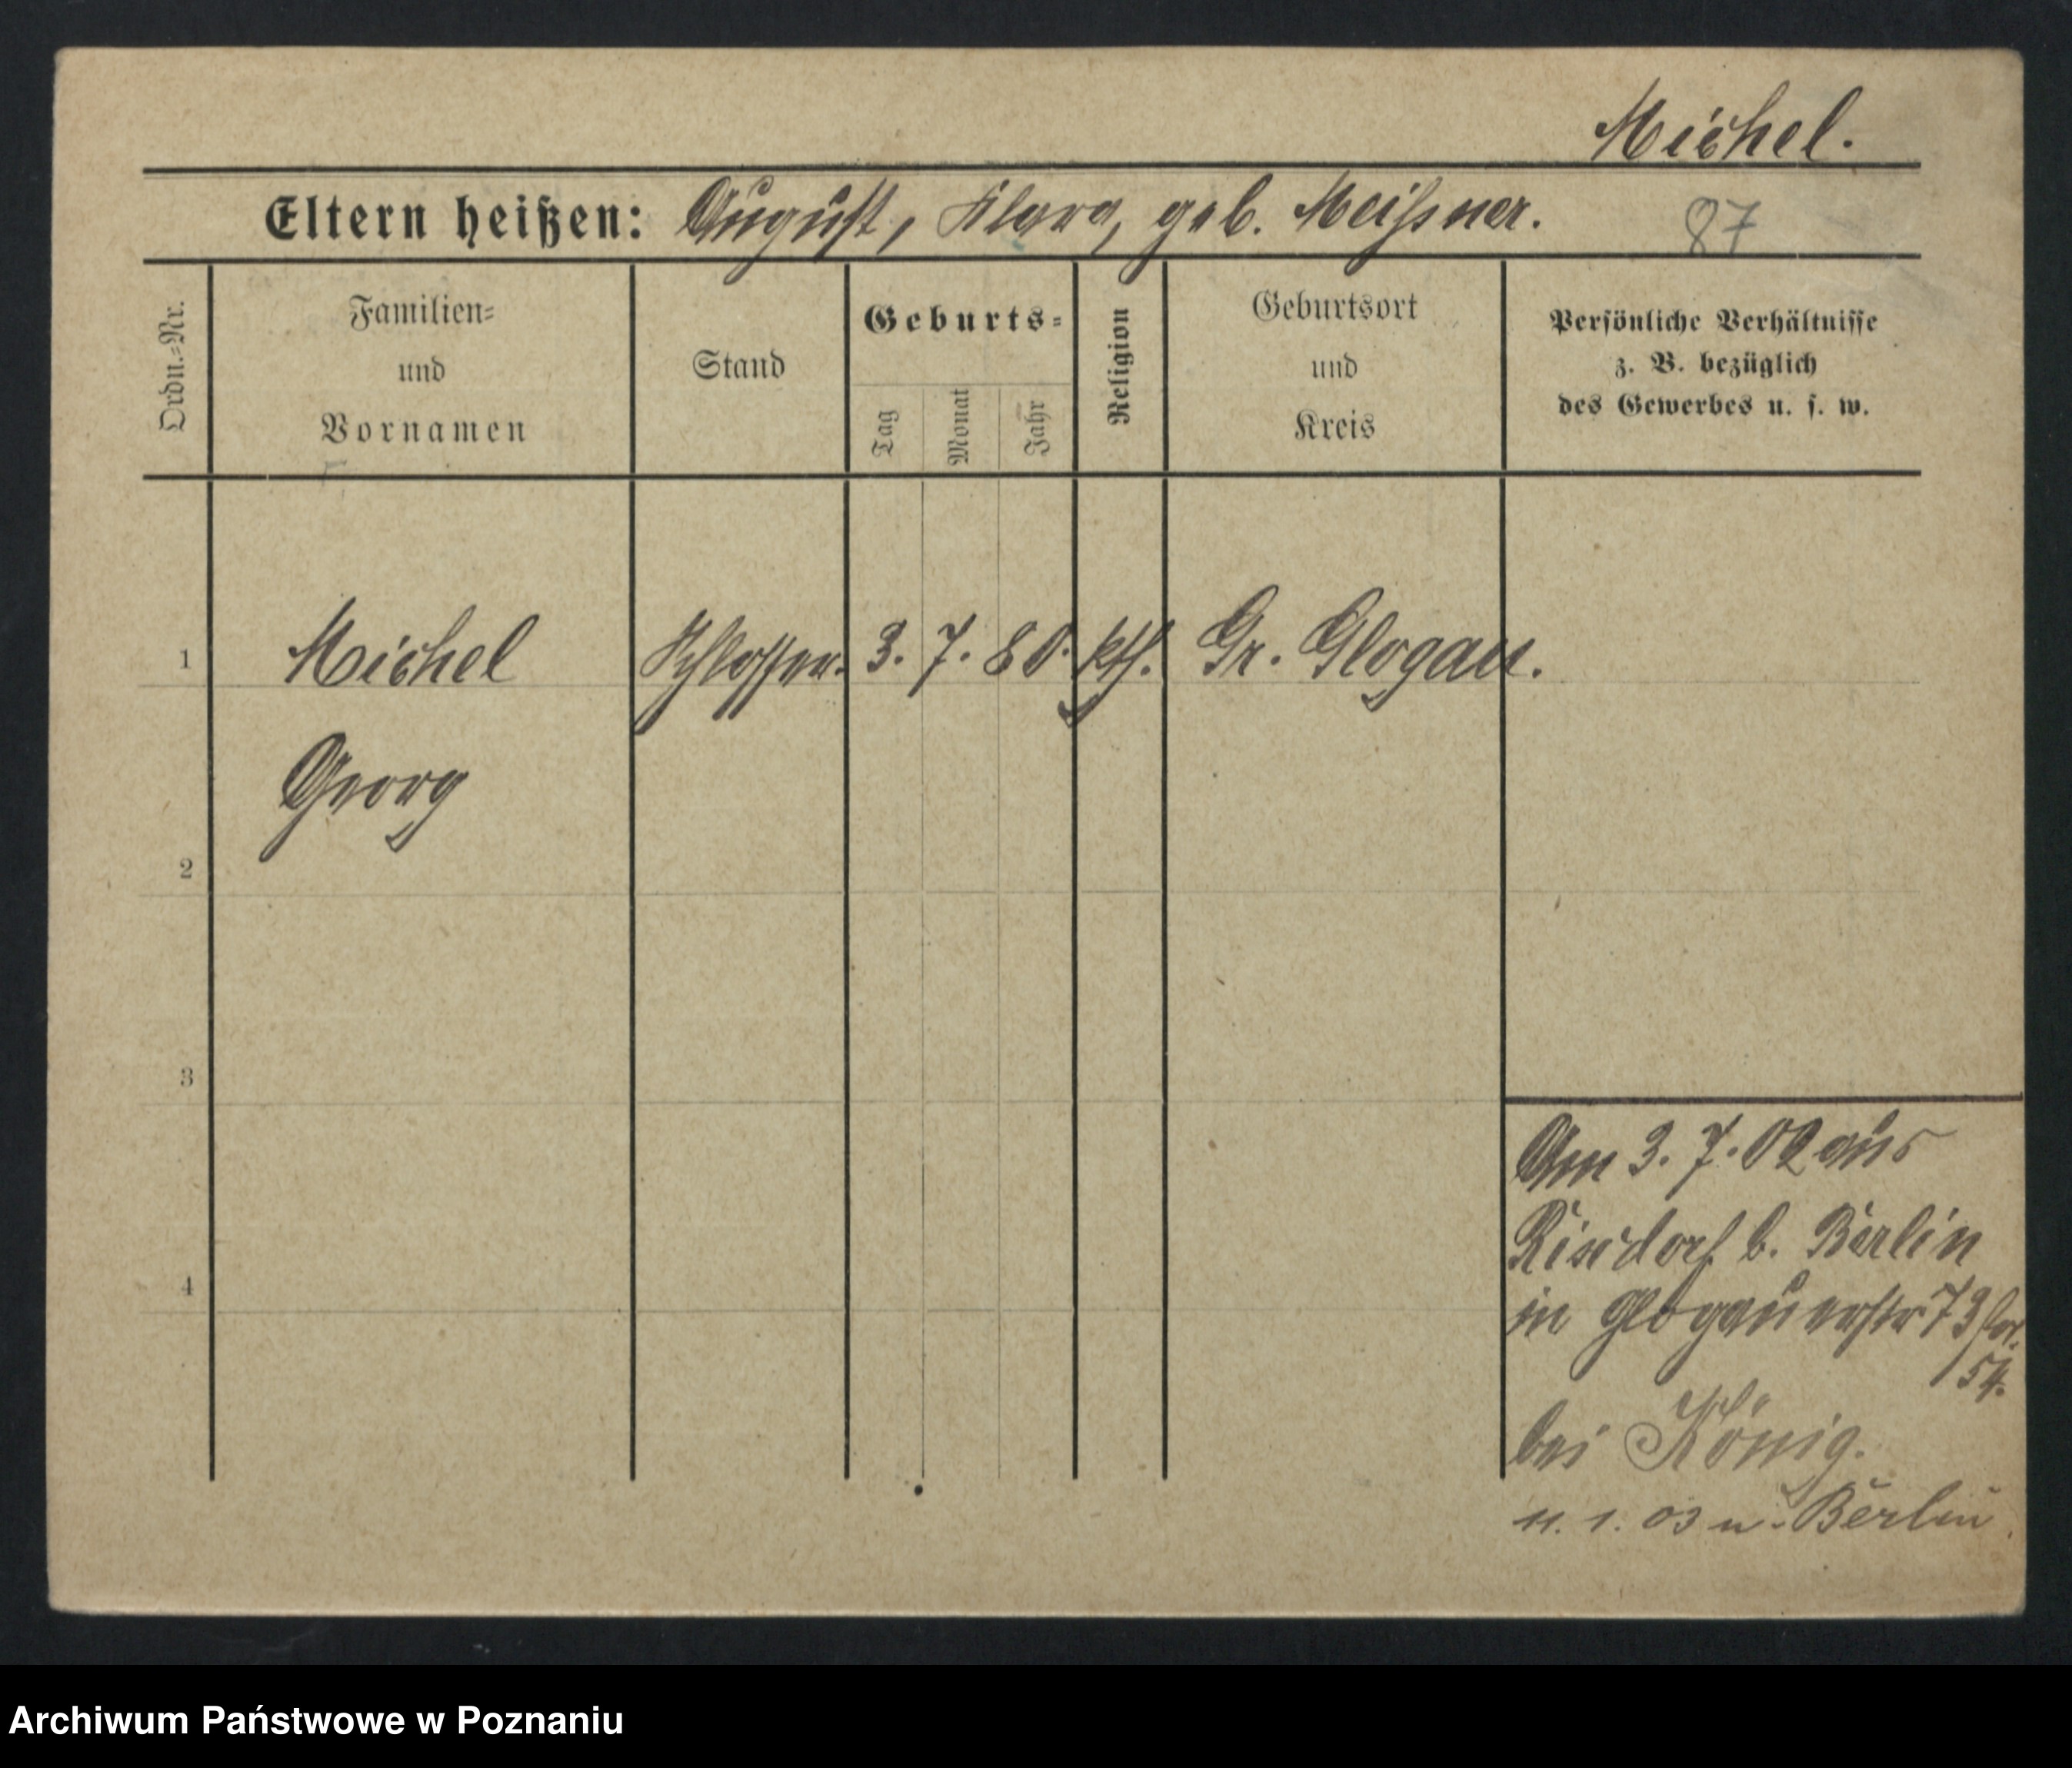 Michel.
Eltern heißen: August, Klara, geb. Meißner. 87
Ordn.=Nr.
Familien=
und
Vornamen
Stand
Geburts=
Tag
Monat
Jahr
Religion
Geburtsort
und
Kreis
Persönliche Verhältnisse
z. B. bezüglich
des Gewerbes u. s. w.
1 Michel Schlosser. 3. 7. 80. kth. Gr. Glogau.
Georg
2
3
4
Am 3. 7. 02 aus
Rixdorf b. Berlin
in Glogauerstr 73
54.
bei König.
11. 1. 03 n. Berlin
Archiwum Państwowe w Poznaniu